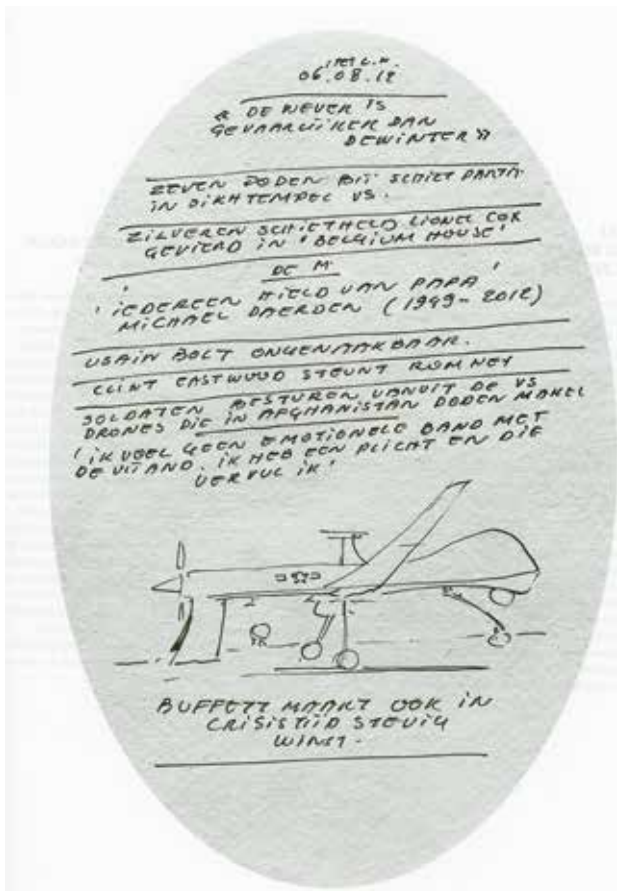 06.08.12
« DE WEVER IS
GEVAARLIJKER DAN
DEWINTER »
ZEVEN DODEN BIJ SCHIETPARTIJ
IN SIKHTEMPEL VS.
ZILVEREN SCHIETHELD LIONEL COX
GEVIERD IN 'BELGIUM HOUSE'
DE M
'IEDEREEN HIELD VAN PAPA'
MICHAEL DAERDEN (1949-2012)
USAIN BOLT ONGENAAKBAAR.
CLINT EASTWOOD STEUNT ROMNEY
SOLDATEN BESTUREN VANUIT DE VS
DRONES DIE IN AFGHANISTAN DODEN MAKEN
'IK VOEL GEEN EMOTIONELE BAND MET
DE VIJAND. IK HEB EEN PLICHT EN DIE
VERVUL IK'
BUFFETT MAAKT OOK IN
CRISISTIJD STEVIG
WINST.